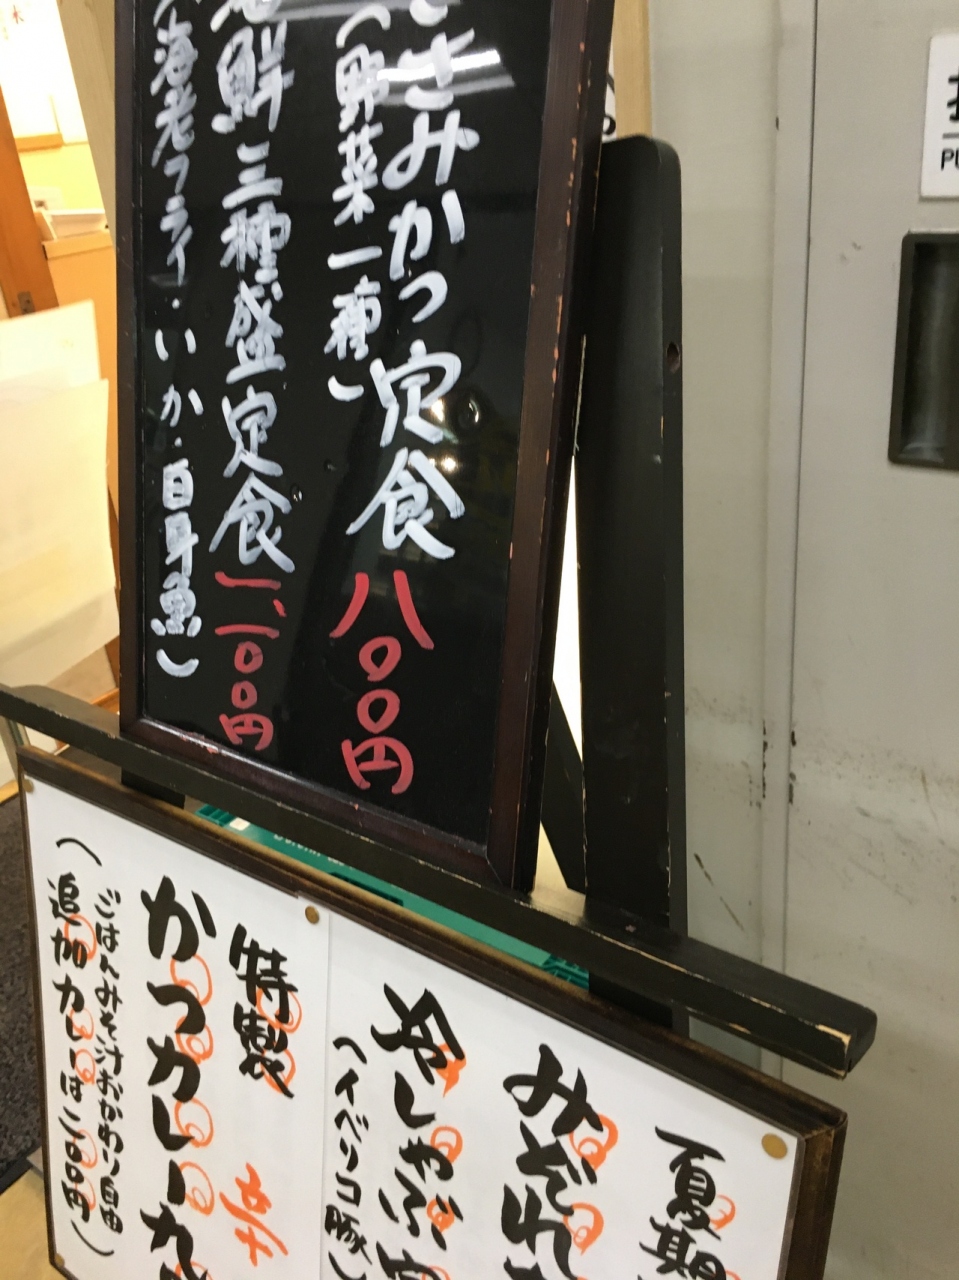 ささみかつ定食 八〇〇円
（野菜一種）
海鮮三種盛定食 一、一〇〇円
（海老フライ・いか・白身魚）
夏期
みぞれ
冷しゃぶ定
（イベリコ豚）
特製
かつカレー
（ごはんみそ汁おかわり自由
追加カレーは二〇〇円）